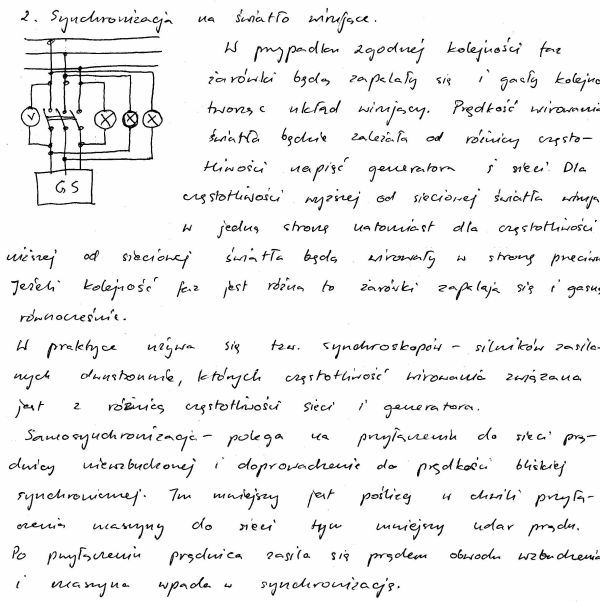 2. Synchronizacja na światło wirujące.
W przypadku zgodnej kolejności faz
żarówki będą zapalały się i gasły kolejno
tworząc układ wirujący. Prędkość wirowania
światła będzie zależała od różnicy często-
tliwości napięć generatora i sieci Dla
częstotliwości wyższej od sieciowej światła wirują
w jedną stronę natomiast dla częstotliwości
niższej od sieciowej światła będą wirowały w stronę przeciwn
Jeżeli kolejność faz jest różna to żarówki zapalają się i gasną
równocześnie.
W praktyce używa się tzw. synchroskopów – silników zasila-
nych dwustronnie, których częstotliwość wirowania związana
jest z różnicą częstotliwości sieci i generatora.
Samosynchronizacja – polega na przyłączeniu do sieci prą-
dnicy niewzbudzonej i doprowadzenie do prędkości bliskiej
synchronicznej. Im mniejszy jest poślizg w chwili przyłą-
czenia maszyny do sieci tym mniejszy udar prądu.
Po przyłączeniu prądnica zasila się prądem obwodu wzbudzenia
i maszyna wpada w synchronizację.
V
GS